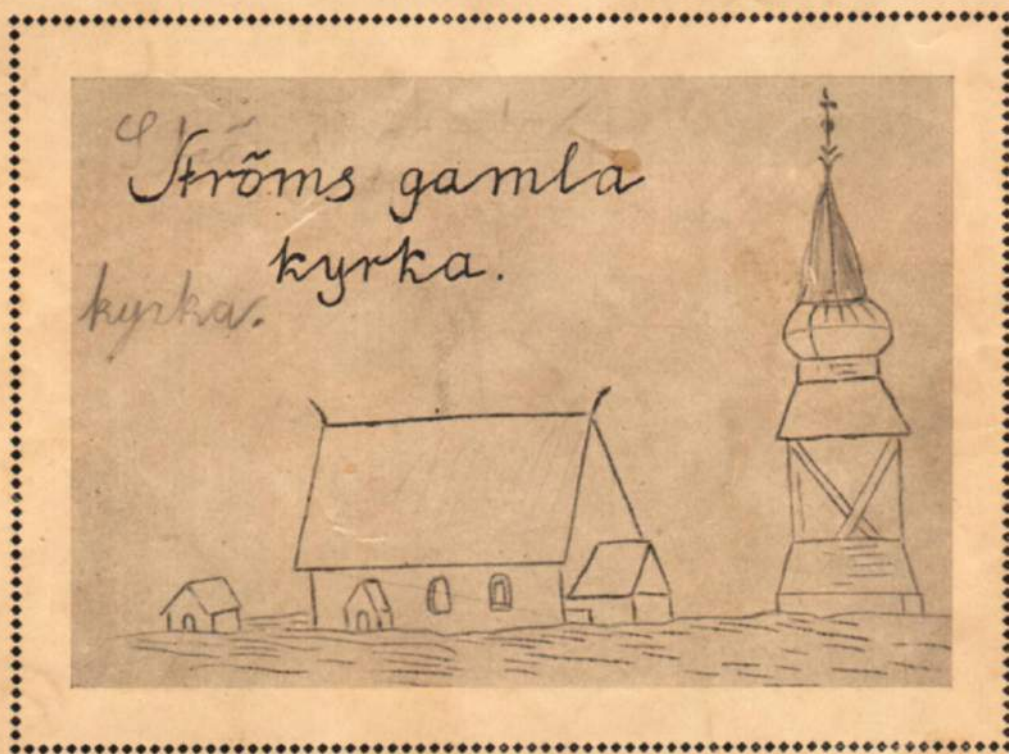 Ströms gamla
kyrka.
kyrka.